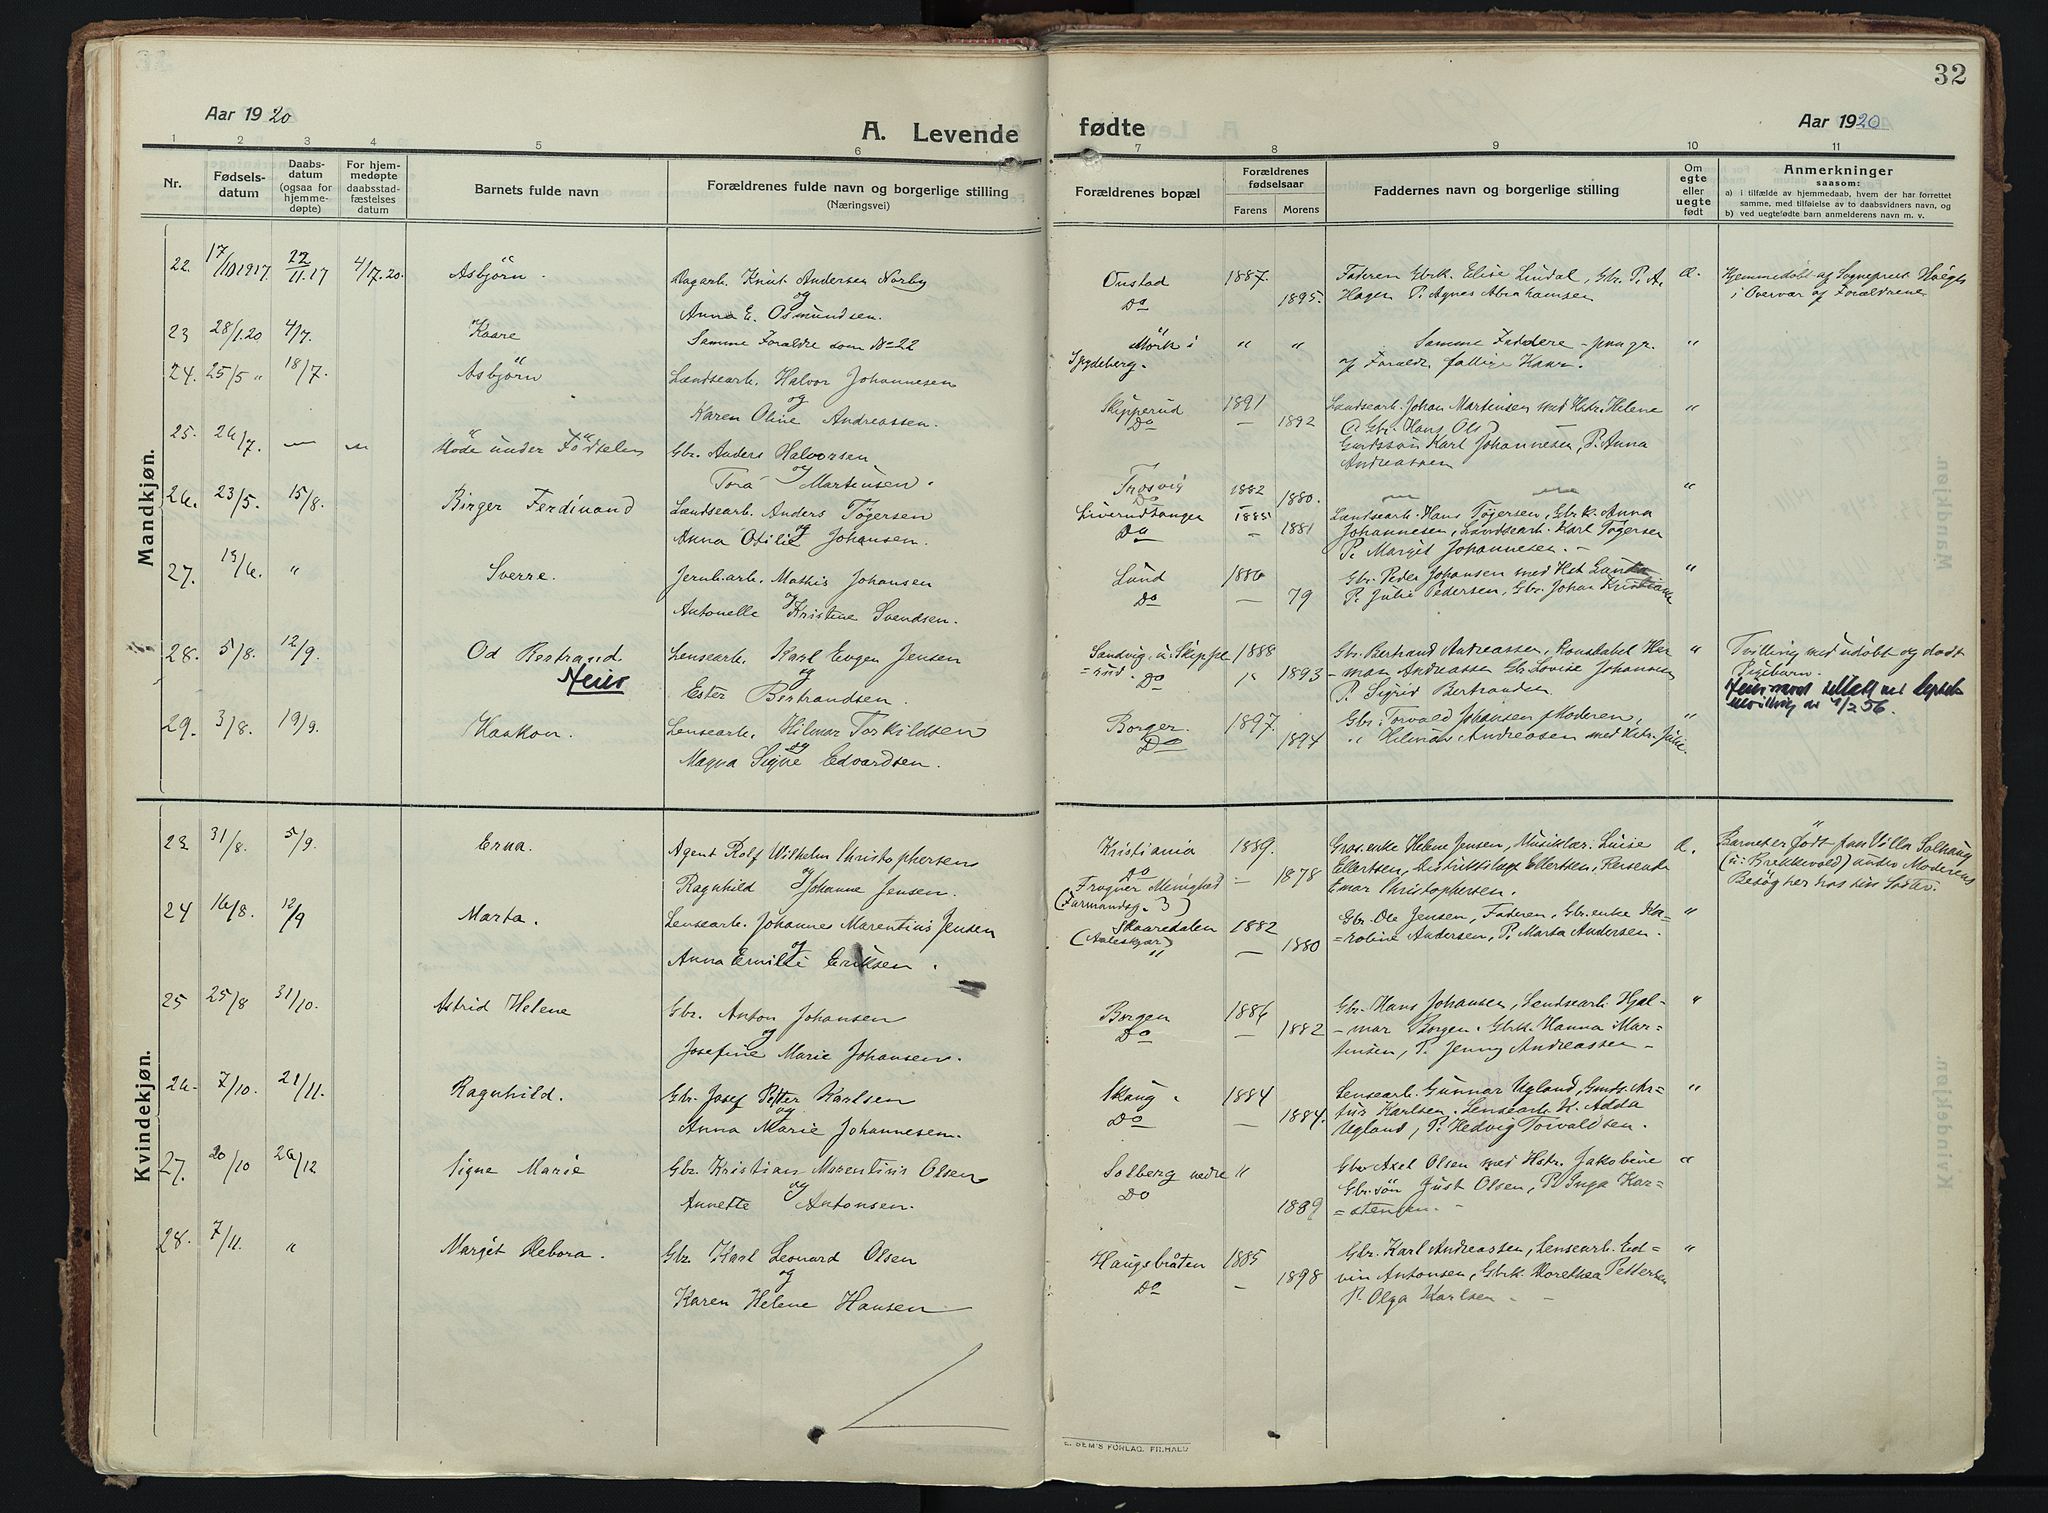 32
Aar 1920
A. Levende
fødte
Aar 1920
1 2 3 4 5 6 7 8 9 10 11
Nr.
Fødsels-
datum
Daabs-
datum
(ogsaa for
hjemme-
døpte)
For hjem-
medøpte
daabsstad-
fæstelses
datum
Barnets fulde navn
Forældrenes fulde navn og borgerlige stilling
(Næringsvei)
Forældrenes bopæl
Forældrenes
fødselsaar
Farens Morens
Faddernes navn og borgerlige stilling
Om
egte
eller
uegte
født
Anmerkninger
saasom:
a) i tilfælde av hjemmedaab, hvem der har forrettet
samme, med tilføielse av to daabsvidners navn, og
b) ved uegtefødte barn anmelderens navn m. v.
Mandkjøn.
22. 17/10 1917. 22/11.17 4/7.20. Asbjørn. Dagarb. Knut Andersen Norby
og
Anna E. Osmundsen.
Onstad 1887.
Do 1895.
Faderen Gbrk. Elise Lindal, Gbr. P. A.
Hagen P. Agnes Abrahamsen
Hjemmedøbt af Sogneprest
i Overvær af Forældrene
23 28/1.20 4/7. Kaare Samme Forældre som No 22
Mörk i " "
Spydeberg.
Samme Faddere
"
24. 25/5 " 18/7. Asbjörn Landsearb. Halvor Johannesen
og
Karen Oline Andreassen.
Skipperud 1891
Do — 1892
Landsearb. Johan Martinsen med Hstr. Helene "
Gbr. Hans Ols
Gaardssön Karl Johannesen, P. Anna
Andreassen
25. 26/7. — — Döde under Födselen Gbr. Anders Halvorsen
og
Tora Martinsen.
Trosvig 1882
Do 1880. — — "
26. 23/5. 15/8. Birger Ferdinand Landsearb. Anders Tögersen
og
Anna Otilie Johansen.
Liverudtangen 1885
Do — 1881
Landsearb. Hans Tögersen, Gbrk. Anna
Johannesen, Landsearb. Karl Tögersen
P. Margit Johannesen. –
27. 13/6. " Sverre. Jernb.arb. Mathis Johansen
og
Antonelle Kristine Svendsen.
Lund 1886
Do — 79
Gbr. Peder Johansen med Hst "
P. Julie Pedersen, Gbr. Johan
28. 5/8. 12/9. Od Bertrand Lensearb. Karl Evgen Jensen
og
Ester Bertrandsen.
Sandvig, u. Skippe 1888
=rud. Do " 1893
Gbr. Bertrand Andreassen, Konstabel Her "
– man Andreassen Gb. Lovise Johansen
P. Sigrid Bertrandsen.
Tvilling med udöbt og dödt
Pigebarn.
29. 3/8. 19/9. Haakon. Lensearb. Hilmar Torkildsen
og
Magna Signe Edvardsen.
Borger. 1897.
Do 1894
Gbr. Torvald Johansen, Moderen, "
" Hilmar Andreasen med Hstr. Julie.
Kvindekjøn.
23 31/8. 5/9. Erna. Agent Rolf Wilhelm Christophersen
og
Ragnhild Johanne Jensen.
Kristiania 1889.
Do
Frogner Menighed — 1878
Gros.enke Helene Jensen, Musiklær. Luise
Ellertsen, Ellertsen,
Einar Christophersen.
Barnet er født paa Villa Solhaug
(u: Brekkevold) under Moderens
Besøg her hos sin
24 16/8. 12/9 Marta. Lensearb. Johannes Marentius Jensen
og
Anna Emilie Eriksen.
Skaaredalen 1882
" — 1880
Gbr. Ole Jensen, Faderen, Gbr.enke Ka- "
=roline Andersen, P. Marta Andersen.
25 25/8 31/10. Astrid Helene Gbr. Anton Johansen
og
Josefine Marie Johansen.
Borgen 1886
Do — 1882
Gbr. Hans Johansen, Lensearb. Hjal- "
-mar Borgen. Gbrk. Hanna Mar-
tinsen, P. Jenny Andreassen –
26. 7/10. 21/11. Ragnhild. Gbr. Josef Petter Karlsen
og
Anna Marie Johannesen.
Skaug. 1884
Do 1884.
Lensearb. Gunnar Ugland, Gaards. Ar= "
tur Karlsen. Lensearb. K. Adda
Ugland, P. Hedvig Torvaldsen.
27. 20/10 26/12 Signe Marie Gbr. Kristian Marentius Olsen
og
Annette Antonsen.
Solberg nedre "
Do 1889
Gbr Axel Olsen med Hstr. Jakobine "
Gbr.sön Just Olsen, P. Inga Kar=
=stensen.
28. 7/11. " Margit Debora. Gbr. Karl Leonard Olsen
og
Karen Helene Hansen
Haugsbråten 1885
Do — 1898
Gbr. Karl Andreassen, Lensearb. Ed= "
vin Antonsen, Gbrk. Dorethea Pettersen
P. Olga Karlsen – –
E. SEM'S FORLAG, FR.HALD